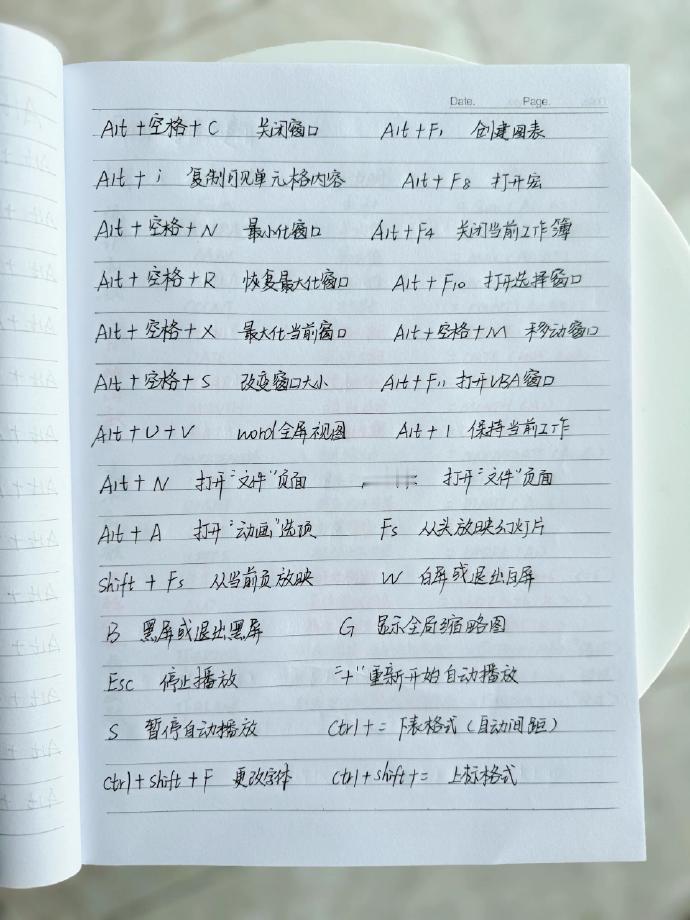 Date. Page.
Alt+空格+C 关闭窗口 Alt+F1 创建图表
Alt+i 复制可见单元格内容 Alt+F8 打开宏
Alt+空格+N 最小化窗口 Alt+F4 关闭当前工作簿
Alt+空格+R 恢复最大化窗口 Alt+F10 打开选择窗口
Alt+空格+X 最大化当前窗口 Alt+空格+M 移动窗口
Alt+空格+S 改变窗口大小 Alt+F11 打开VBA窗口
Alt+U+V word全屏视图 Alt+1 保持当前工作
Alt+N 打开"文件"页面 打开"文件"页面
Alt+A 打开"动画"选项 F5 从头放映幻灯片
Shift+F5 从当前页放映 W 白屏或退出白屏
B 黑屏或退出黑屏 G 显示全局缩略图
Esc 停止播放 "+"重新开始自动播放
S 暂停自动播放 Ctrl+= 下表格式(自动间距)
Ctrl+Shift+F 更改字体 Ctrl+shift+= 上标格式